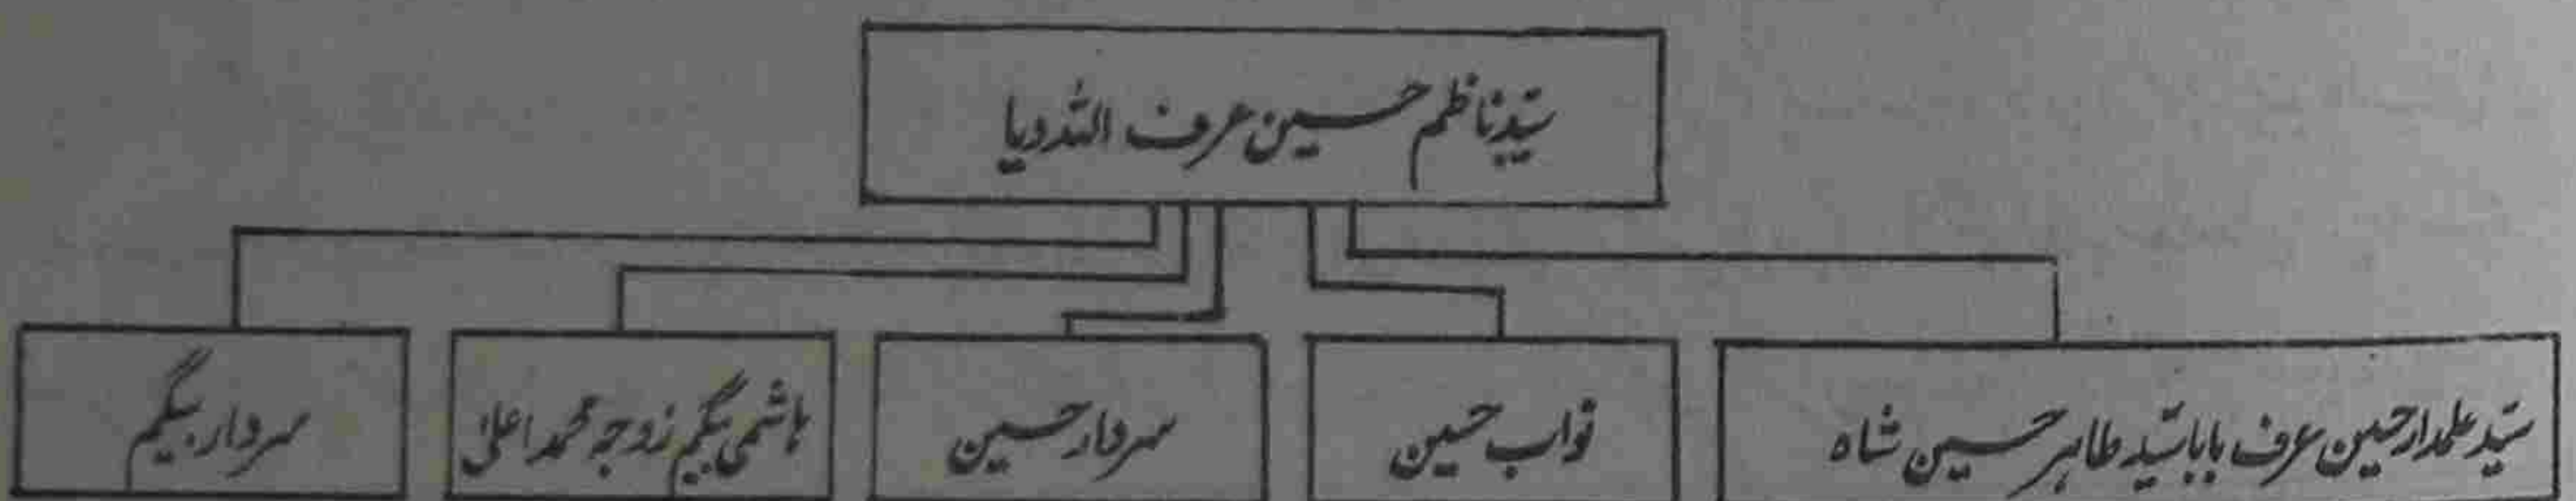 سیّد ناظم حسین عرف اللہ دویا
سیّد علمدار حسین عرف بابا سیّد طاہر حسین شاہ
نواب حسین
سردار حسین
ہاشمی بیگم زوجہ محمد اعلیٰ
سردار بیگم